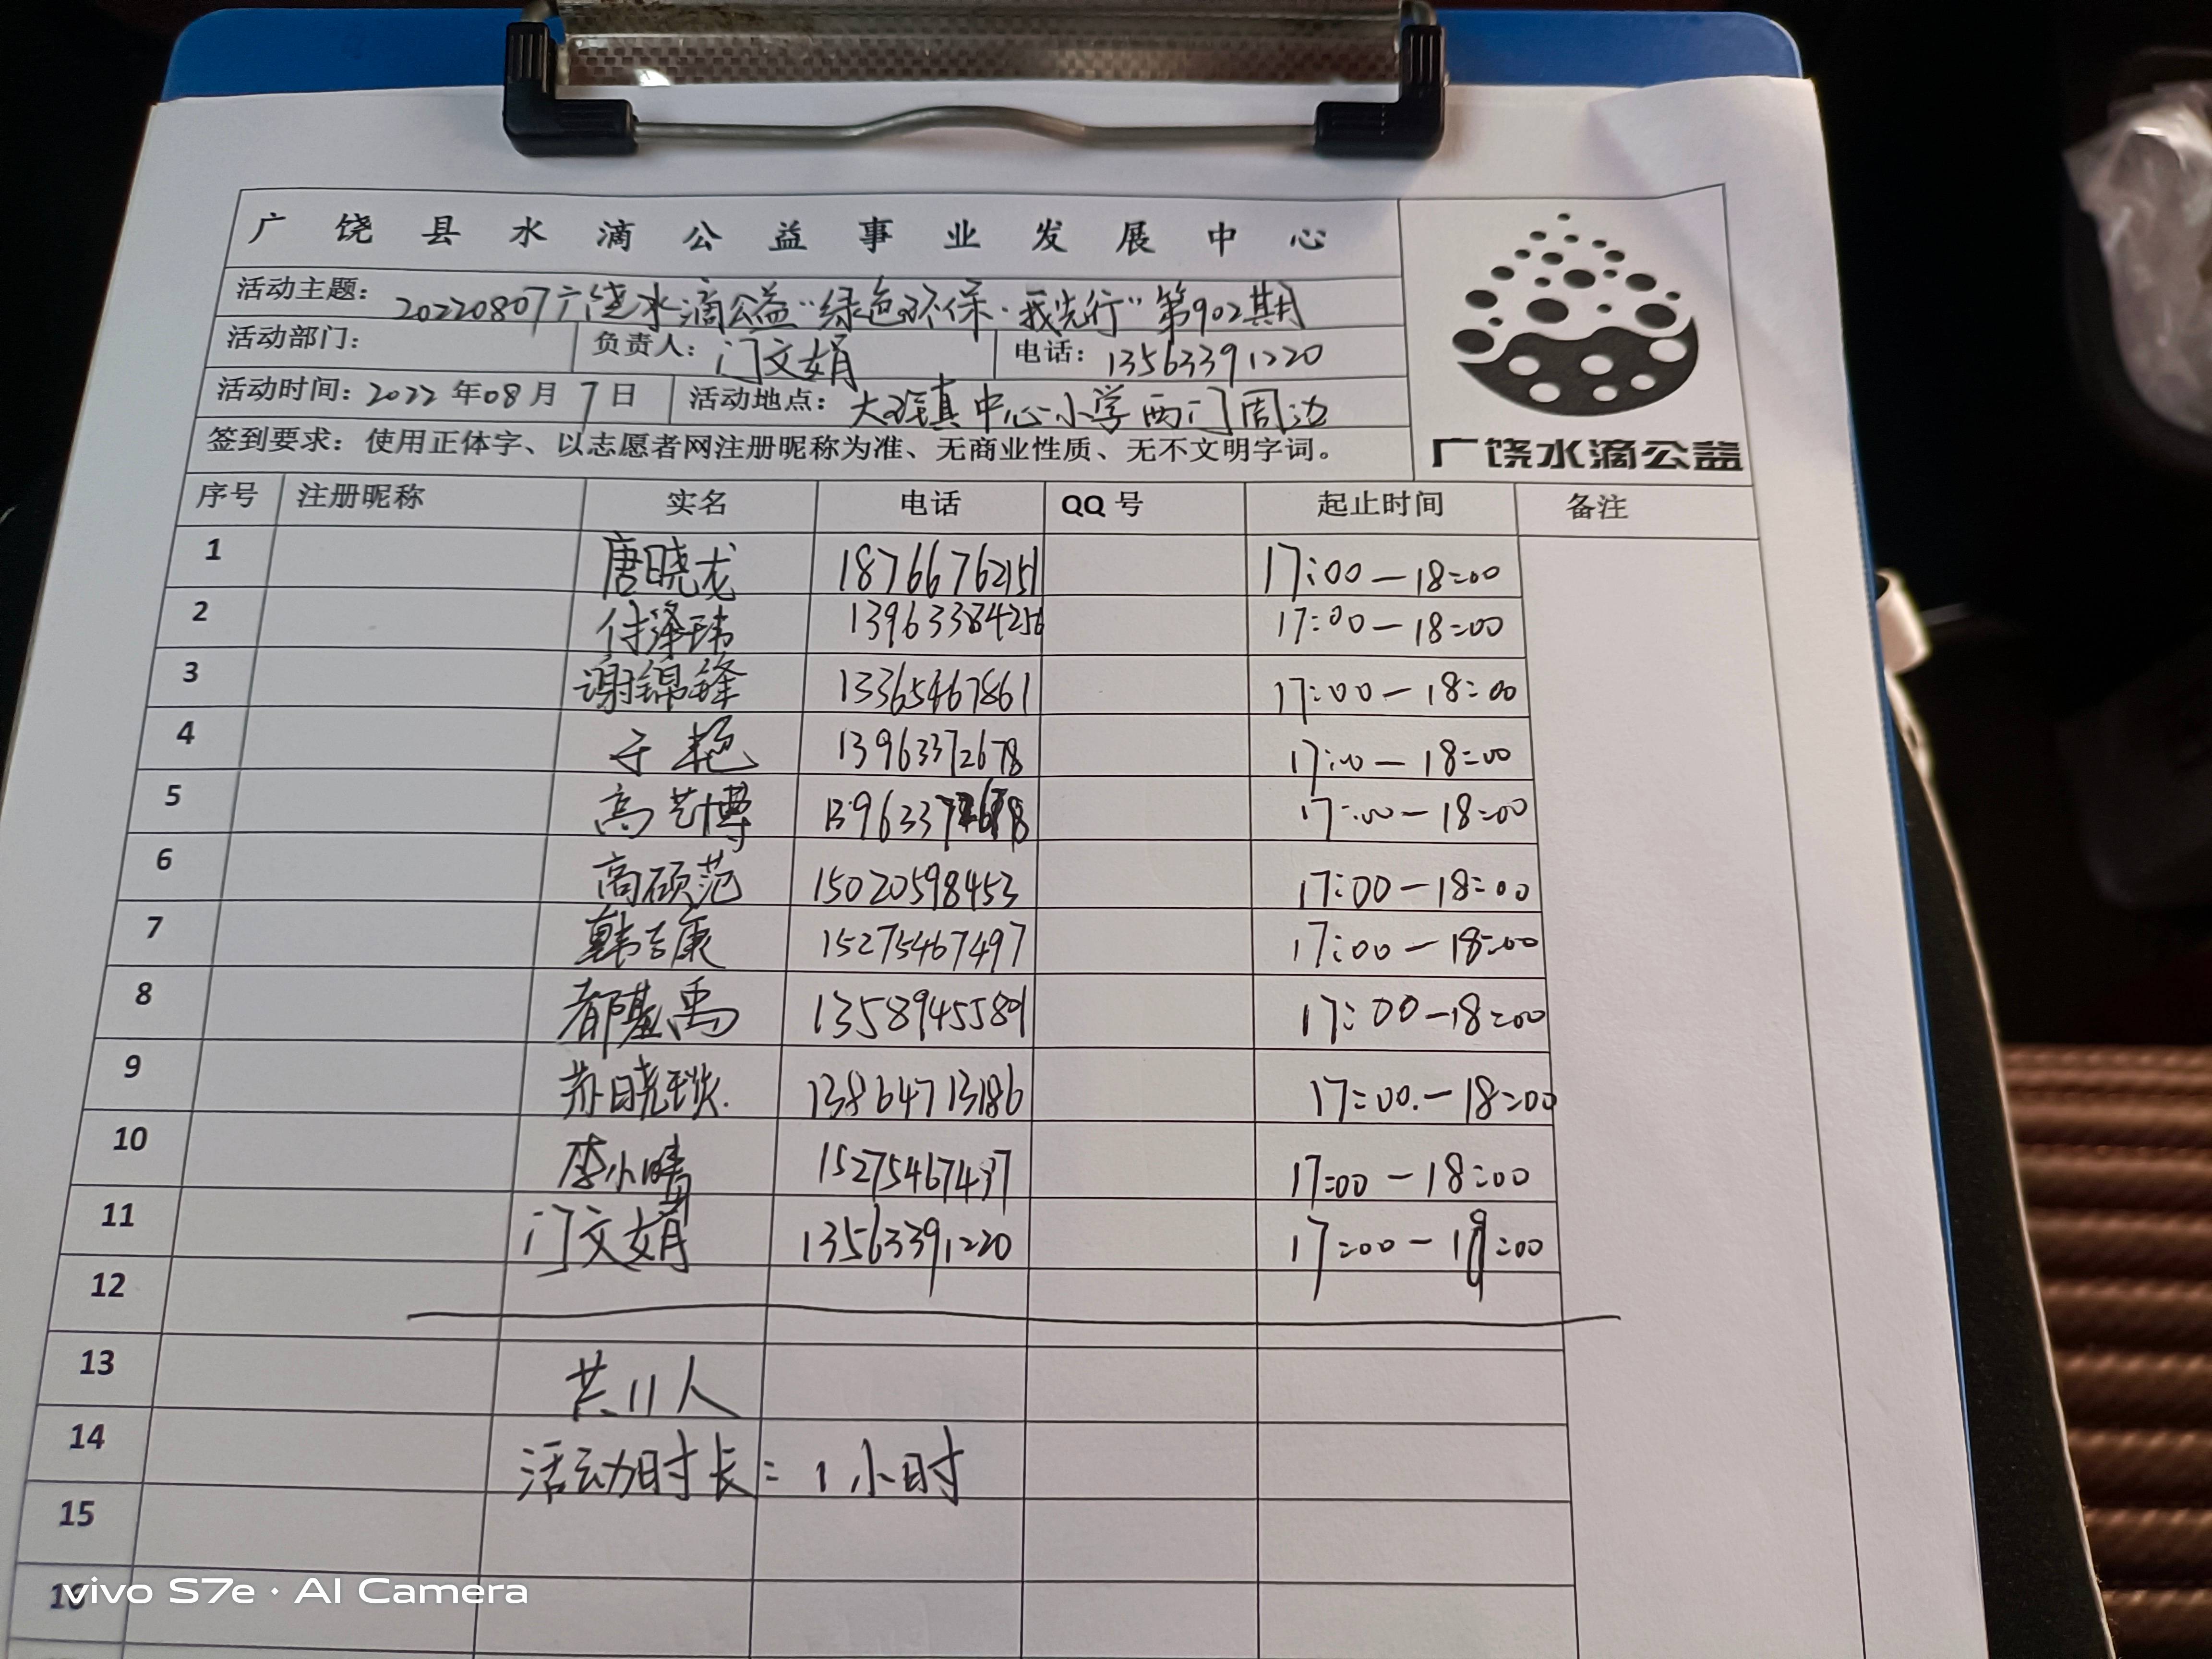 广饶县水滴公益事业发展中心
活动主题：20220807广饶水滴公益“绿色环保·我先行”第902期
活动部门： 负责人：门文娟 电话：13563391220
活动时间：2022年08月7日 活动地点：大王镇中心小学西门周边
签到要求：使用正体字、以志愿者网注册昵称为准、无商业性质、无不文明字词。
广饶水滴公益
序号 注册昵称 实名 电话 QQ号 起止时间 备注
1 唐晓龙 18766762151 17:00—18:00
2 付泽玮 13963384256 17:00—18:00
3 谢锦锋 13365467861 17:00—18:00
4 于艳 13963372678 17:00—18:00
5 高艺博 13963372678 17:00—18:00
6 高硕范 15020598453 17:00—18:00
7 韩吉康 15275467497 17:00—18:00
8 都基禹 13589455891 17:00—18:00
9 苏晓琰 13864713186 17:00—18:00
10 李小晴 15275467437 17:00—18:00
11 门文娟 13563391220 17:00—18:00
12
13 共11人
14 活动时长：1小时
15
16
vivo S7e · AI Camera